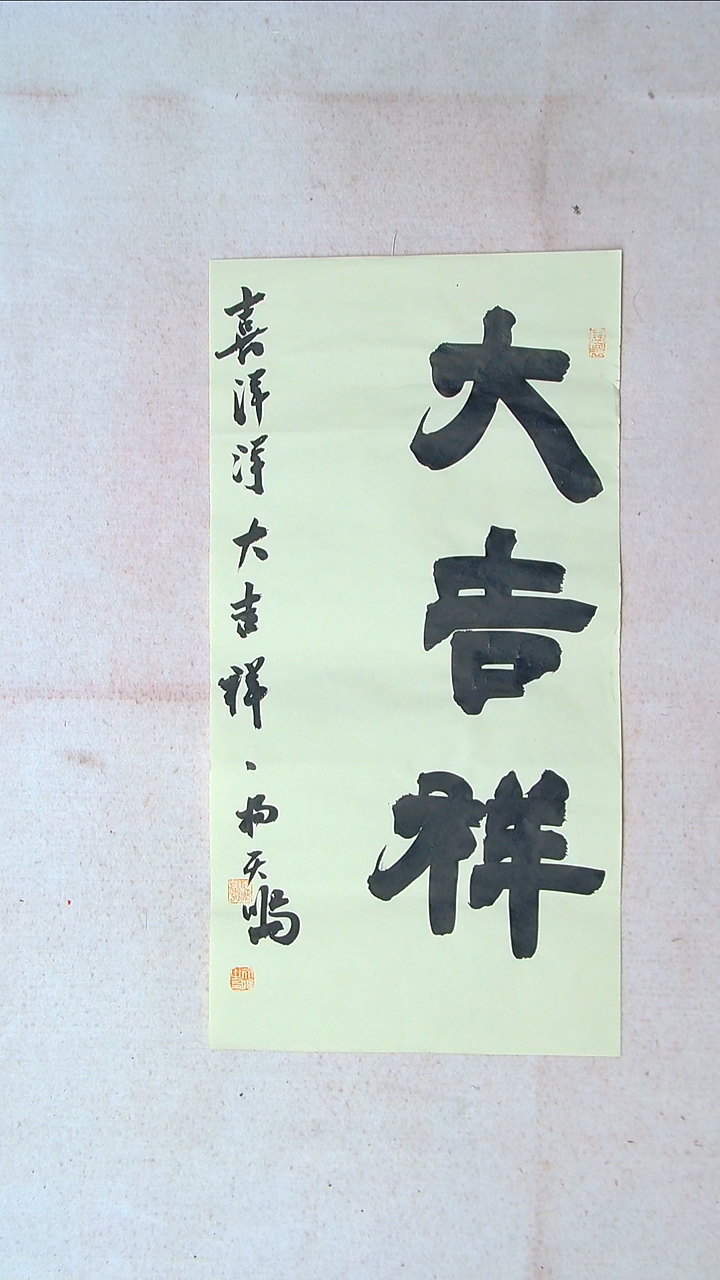 大吉祥
喜洋洋大吉祥、杨天鸣